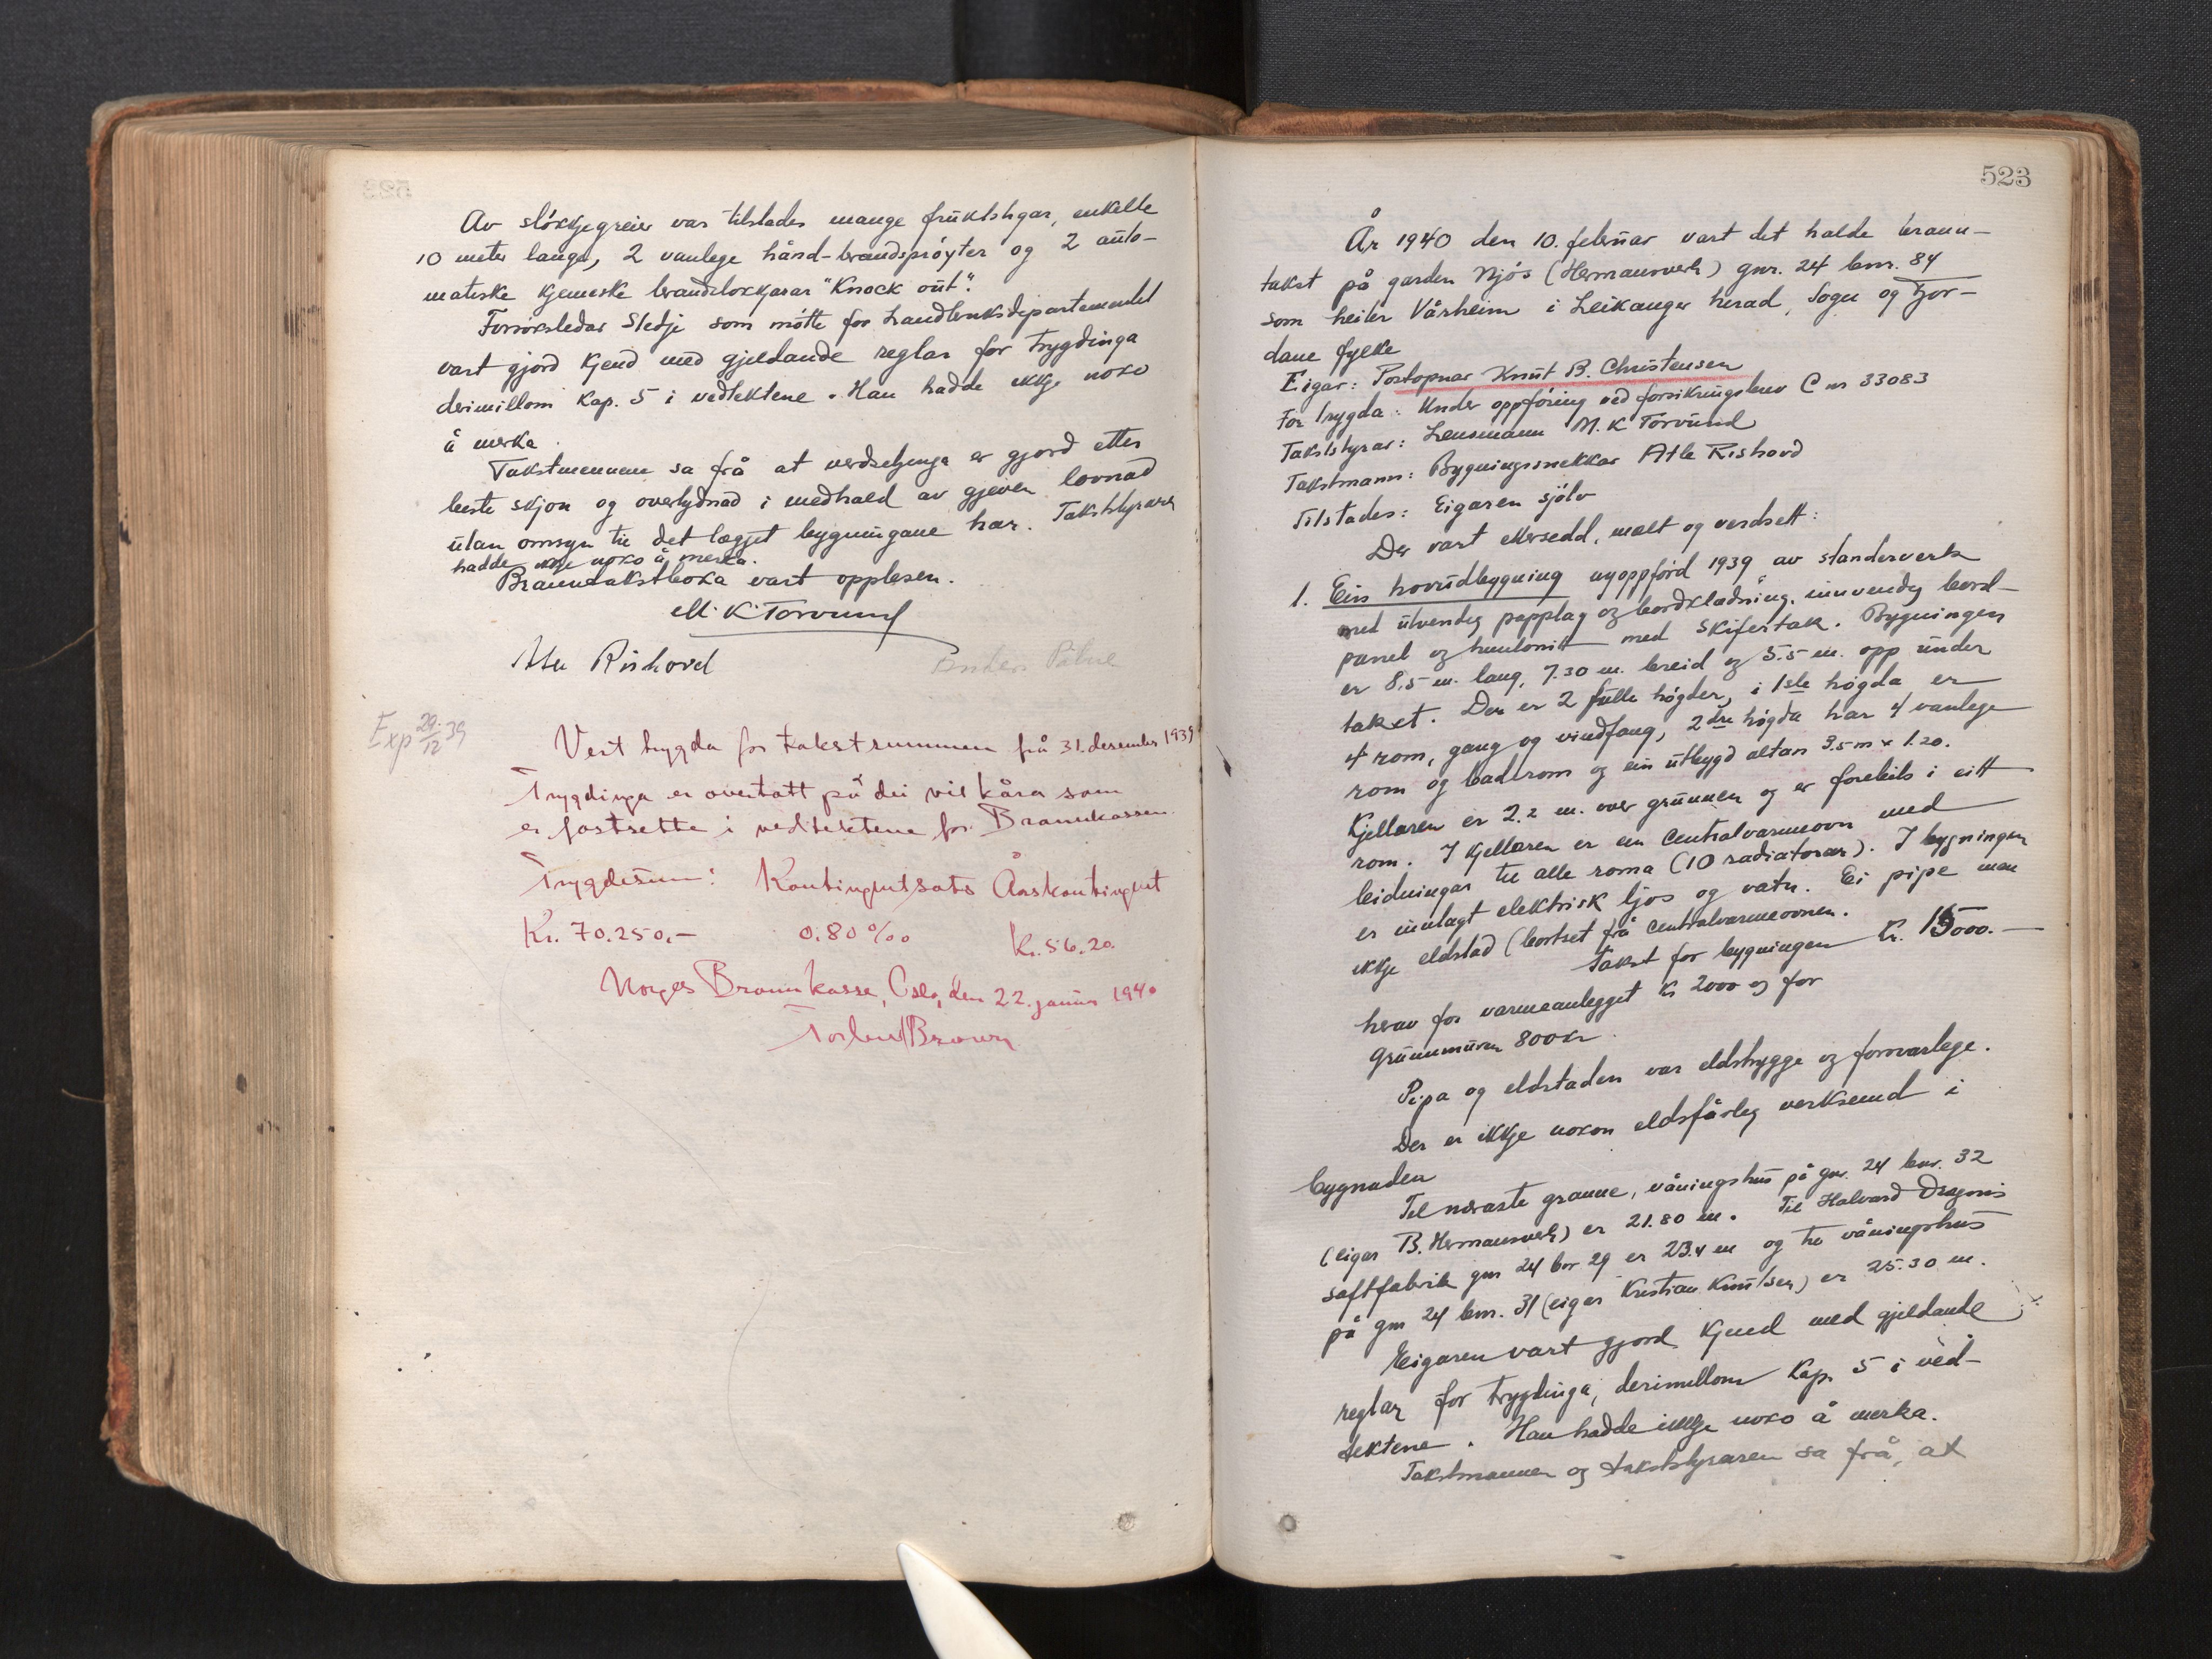 Av sløkkjegreier var tilstades mange fruktstigar, enkelte
10 meter lange, 2 vanlege hånd-brandsprøyter og 2 auto-
matiske kjemiske brandslokkjarar "Knock out".
Forsøksleidar Sledje som møtte for Landbruksdepartementet
vart gjord kjend med gjeldande reglar for trygdinga
derimillom kap. 5 i vedtektene. Han hadde ikkje noko
å merka.
Takstmennene sa frå at verdsetjinga er gjord etter
beste skjøn og overtydnad i medhald av gjeven lovnad
utan omsyn til det lægjet bygningane har. Takststyraren
hadde ikkje noko å merka.
Branntakstboka vart opplesen.
M. K. Torvund
Atle Rishovd
Exp 29/12 39
Vert trygda for takstsummen frå 31. desember 1939
Trygdinga er overtatt på dei vilkåra som
er fastsette i vedtektene for Brannkassen.
Trygdesum: Kontingentsats Årskontingent
Kr. 70.250,- 0.80 ‰ Kr. 56.20.
Norges Brannkasse, Oslo, den 22. januar 1940
523
År 1940 den 10. februar vart det halde brann-
takst på garden Njøs (Hermansverk) gnr. 24 bnr. 84
som heiter Vårheim i Leikanger herad, Sogn og Fjor-
dane fylke
Eigar: Postopnar Knut B. Christensen
Før trygda: Under oppføring ved forsikringsbrev C nr 33083
Takststyrar: Lensmann M. K Torvund
Takstmann: Bygningssnekkar Atle Rishovd
Tilstades: Eigaren sjølv
Der vart ettersedd, mælt og verdsett:
1. Ein hovudbygning nyoppførd 1939 av standerverk
med utvendig papplag og bordkladning, innvendig bord-
panel og huntonitt med skifertak. Bygningen
er 8,5 m. lang, 7.30 m. breid og 5.5 m. opp under
taket. Der er 2 fulle høgder, i 1ste høgda er
4 rom, gang og vindfang, 2dre høgda har 4 vanlege
rom og badrom og ein utbygd altan 3.5 m x 1.20.
Kjellaren er 2.2 m. over grunnen og er foreløbig i eitt
rom. I kjellaren er ein centralvarmeovn med
leidningar til alle roma (10 radiatorar). I bygningen
er innlagt elektrisk ljos og vatn. Ei pipe men
ikkje eldstad (bortset frå centralvarmeovnen.
Takst for bygningen Kr. 15000.-
herav for varmeanlegget kr 2000 og for
grunnmuren 800 kr.
Pipa og eldstaden var eldstrygge og forsvarlege.
Der er ikkje nokon eldsfårleg verksemd i
bygnaden
Til næraste granne, våningshus på gnr. 24 bnr. 32
(eigar B. Hermansverk) er 21.80 m. Til Halvard Dragsnis
saftfabrik gnr 24 bnr 29 er 23.4 m og til våningshus
på gnr 24 bnr. 31 (eigar Kristian Knutsen) er 25.30 m.
Eigaren vart gjord kjend med gjeldande
reglar for trygdinga, derimillom kap. 5 i ved-
tektene. Han hadde ikkje noko å merka.
Takstmannen og takststyraren sa frå, at